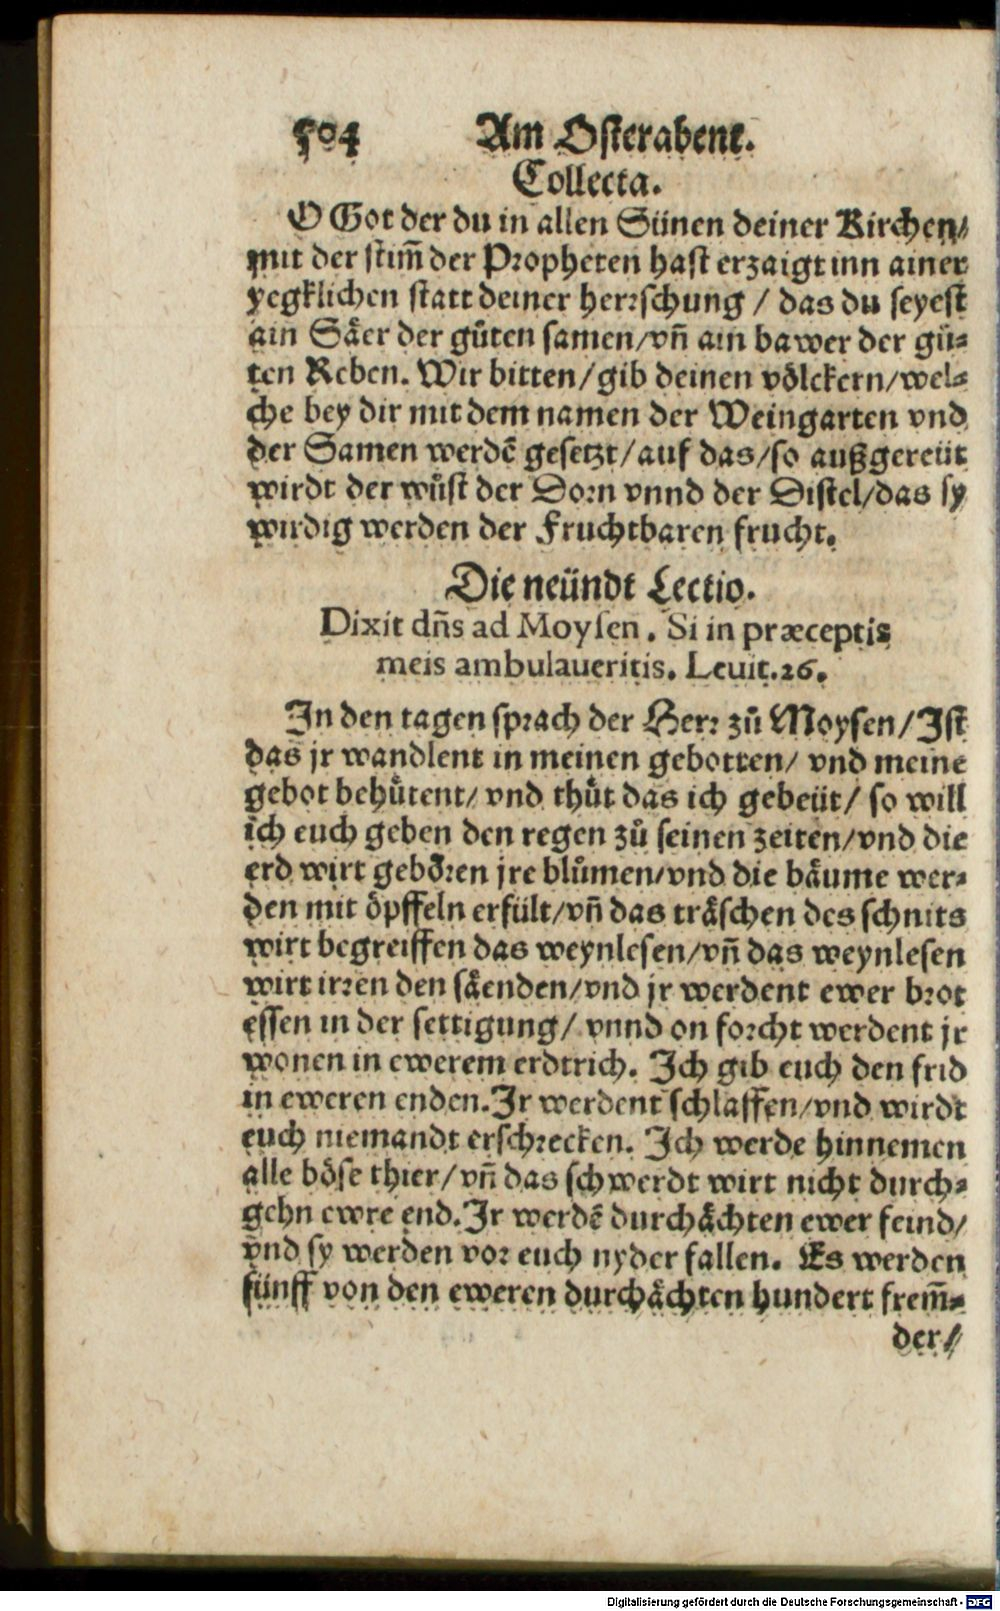 504 Am Osterabent.
Collecta.
O Got der du in allen Sünen deiner Kirchen/
mit der stim̃ der Propheten hast erzaigt inn ainer
yegklichen statt deiner herrschung / das du seyest
ain Säer der gůten samen/vñ ain bawer der gů-
ten Reben. Wir bitten/gib deinen völckern/wel-
che bey dir mit dem namen der Weingarten vnd
der Samen werdẽ gesetzt/auf das/so außgereüt
wirdt der wůst der Dorn vnnd der Distel/das sy
wirdig werden der Fruchtbaren frucht.
Die neündt Lectio.
Dixit dñs ad Moysen. Si in præceptis
meis ambulaueritis. Leuit.26.
In den tagen sprach der Herr zů Moysen/Ist
das jr wandlent in meinen gebotten/ vnd meine
gebot behůtent/ vnd thůt das ich gebeüt/ so will
ich euch geben den regen zů seinen zeiten/vnd die
erd wirt geboren jre blůmen/vnd die bäume wer-
den mit öpffeln erfült/vñ das träschen des schnits
wirt begreiffen das weynlesen/vñ das weynlesen
wirt irren den säenden/vnd jr werdent ewer brot
essen in der settigung/ vnnd on forcht werdent jr
wonen in ewerem erdtrich. Ich gib euch den frid
in eweren enden. Ir werdent schlaffen/vnd wirdt
euch niemandt erschrecken. Ich werde hinnemen
alle böse thier/vñ das schwerdt wirt nicht durch-
gehn ewre end. Ir werdẽ durchächten ewer feind/
vnd sy werden vor euch nyder fallen. Es werden
fünff von den eweren durchächten hundert frem̃-
der/
Digitalisierung gefördert durch die Deutsche Forschungsgemeinschaft - DFG